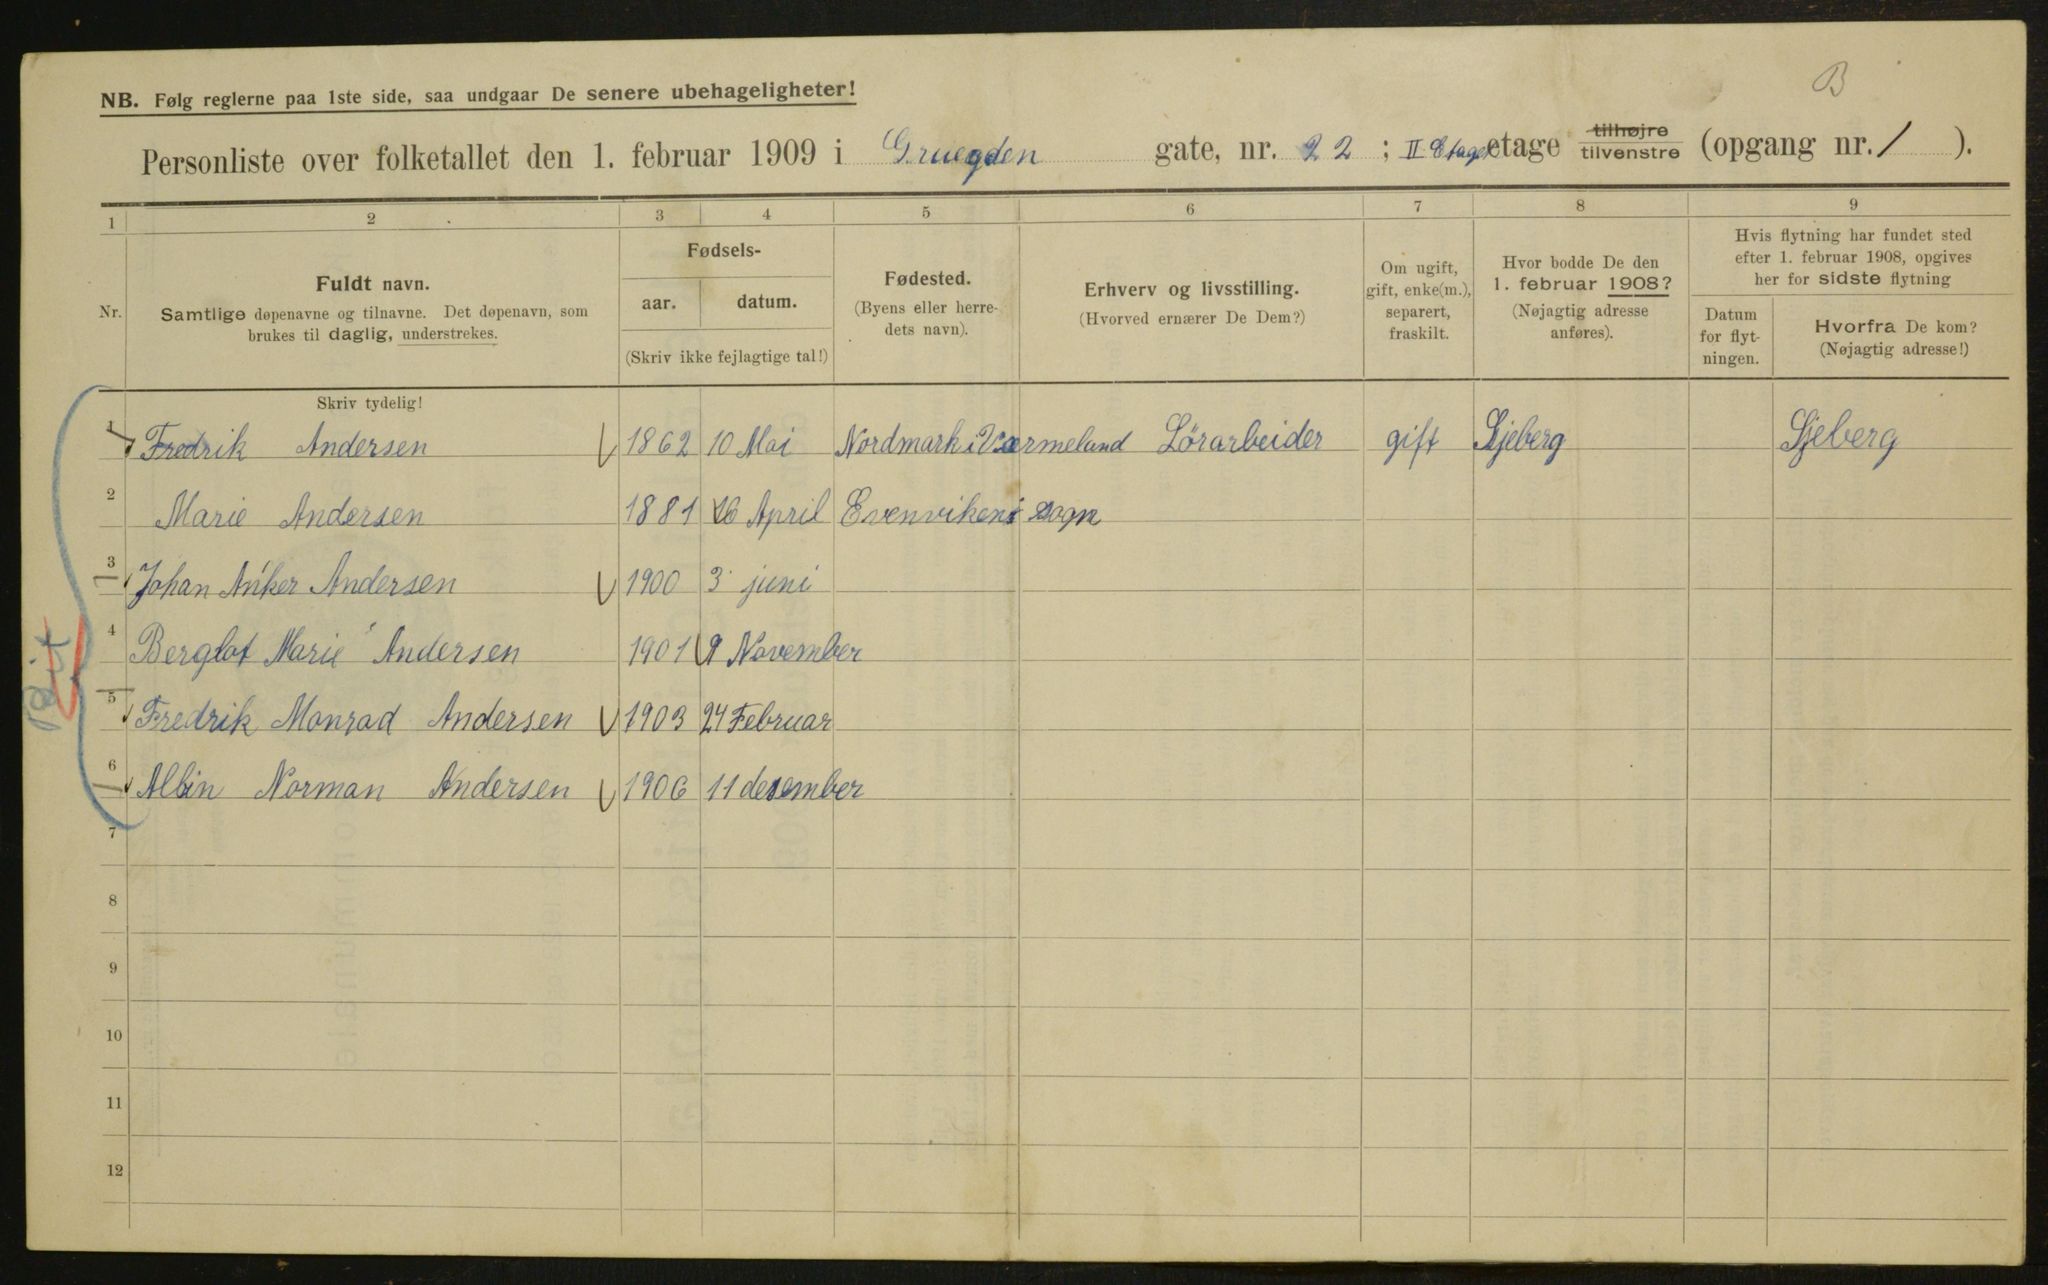 B
NB. Følg reglerne paa 1ste side, saa undgaar De senere ubehageligheter!
Personliste over folketallet den 1. februar 1909 i Gruegden gate, nr. 22 ; II Etage etage tilhøjre tilvenstre (opgang nr. 1 ).
1 2 3 4 5 6 7 8 9
Nr.
Fuldt navn.
Samtlige døpenavne og tilnavne. Det døpenavn, som
brukes til daglig, understrekes.
Fødsels-
aar. datum.
(Skriv ikke fejlagtige tal!)
Fødested.
(Byens eller herre-
dets navn).
Erhverv og livsstilling.
(Hvorved ernærer De Dem?)
Om ugift,
gift, enke(m.),
separert,
fraskilt.
Hvor bodde De den
1. februar 1908?
(Nøjagtig adresse
anføres).
Hvis flytning har fundet sted
efter 1. februar 1908, opgives
her for sidste flytning
Datum
for flyt-
ningen.
Hvorfra De kom?
(Nøjagtig adresse!)
Skriv tydelig!
1 Fredrik Andersen 1862 10 Mai Nordmark i Værmeland Lörarbeider gift Sjeberg Sjeberg
2 Marie Andersen 1881 16 April Evenviken i Sogn
3 Johan Anker Andersen 1900 3 juni
4 Berglot Marie Andersen 1901 9 November
5 Fredrik Monrad Andersen 1903 24 Februar
6 Albin Norman Andersen 1906 11 desember
7
8
9
10
11
12